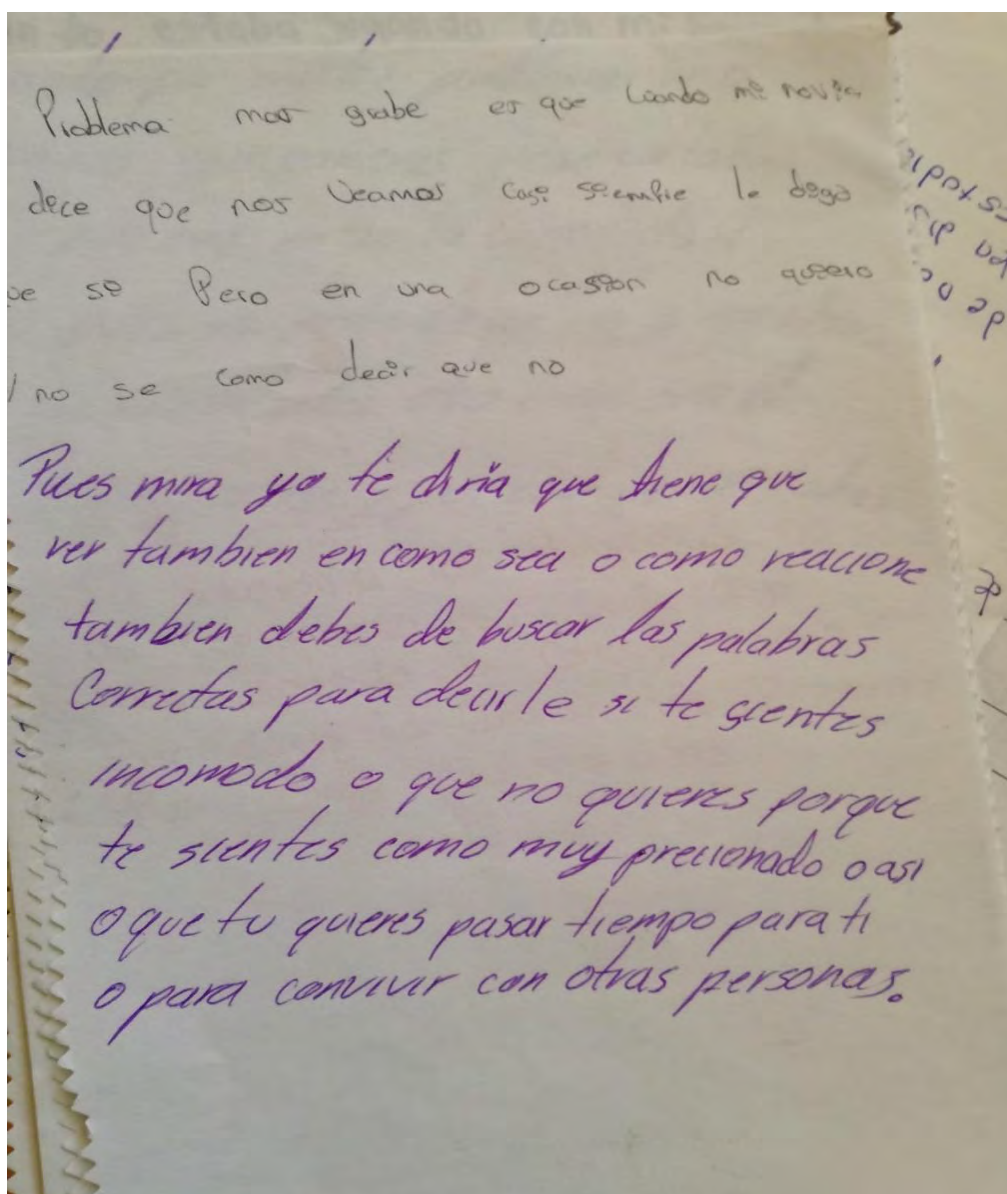 Problema mas grabe es que cuando mi novia
dice que nos veamos casi siempre le digo
ue si Pero en una ocasion no quiero
y no se como decir que no
Pues mira yo te diria que tiene que
ver tambien en como sea o como reacione
tambien debes de buscar las palabras
Correctas para decirle si te sientes
incomodo o que no quieres porque
te sientes como muy precionado o asi
o que tu quieres pasar tiempo para ti
o para convivir con otras personas.